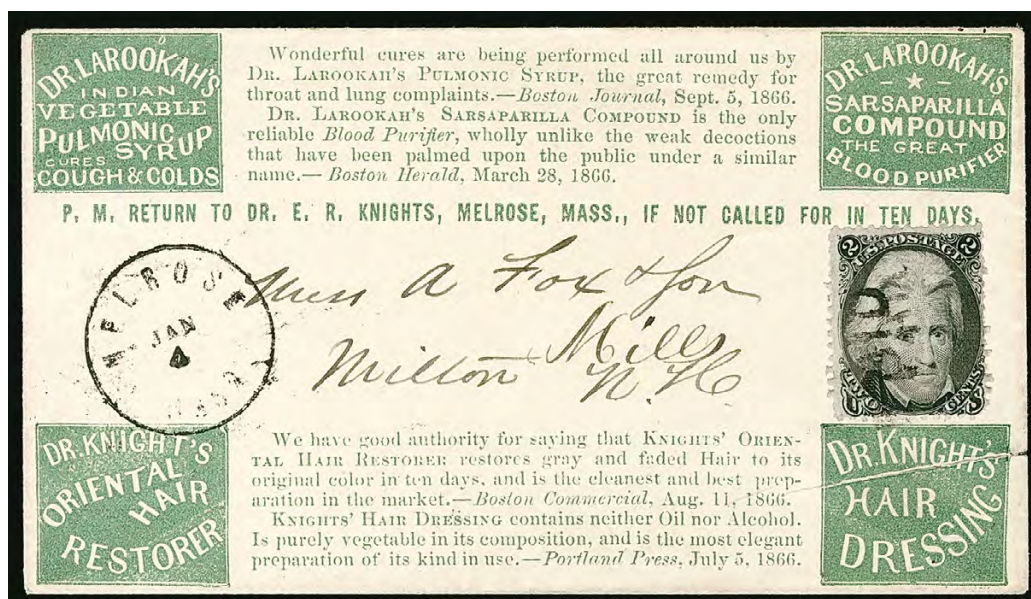 DR. LAROOKAH'S
INDIAN
VEGETABLE
PULMONIC
SYRUP
CURES
COUGH & COLDS
Wonderful cures are being performed all around us by
DR. LAROOKAH'S PULMONIC SYRUP, the great remedy for
throat and lung complaints.—Boston Journal, Sept. 5, 1866.
DR. LAROOKAH'S SARSAPARILLA COMPOUND is the only
reliable Blood Purifier, wholly unlike the weak decoctions
that have been palmed upon the public under a similar
name.— Boston Herald, March 28, 1866.
DR. LAROOKAH'S
SARSAPARILLA
COMPOUND
THE GREAT
BLOOD PURIFIER
P. M. RETURN TO DR. E. R. KNIGHTS, MELROSE, MASS., IF NOT CALLED FOR IN TEN DAYS.
MELROSE
JAN
4
MASS
A Fox & Son
Milton Mills
N. H.
2 U.S. POSTAGE 2
PAID
TWO CENTS
DR. KNIGHT'S
ORIENTAL
HAIR
RESTORER
We have good authority for saying that KNIGHTS' ORIEN-
TAL HAIR RESTORER restores gray and faded Hair to its
original color in ten days, and is the cleanest and best prep-
aration in the market.—Boston Commercial, Aug. 11, 1866.
KNIGHTS' HAIR DRESSING contains neither Oil nor Alcohol.
Is purely vegetable in its composition, and is the most elegant
preparation of its kind in use.—Portland Press, July 5, 1866.
DR. KNIGHT'S
HAIR
DRESSING